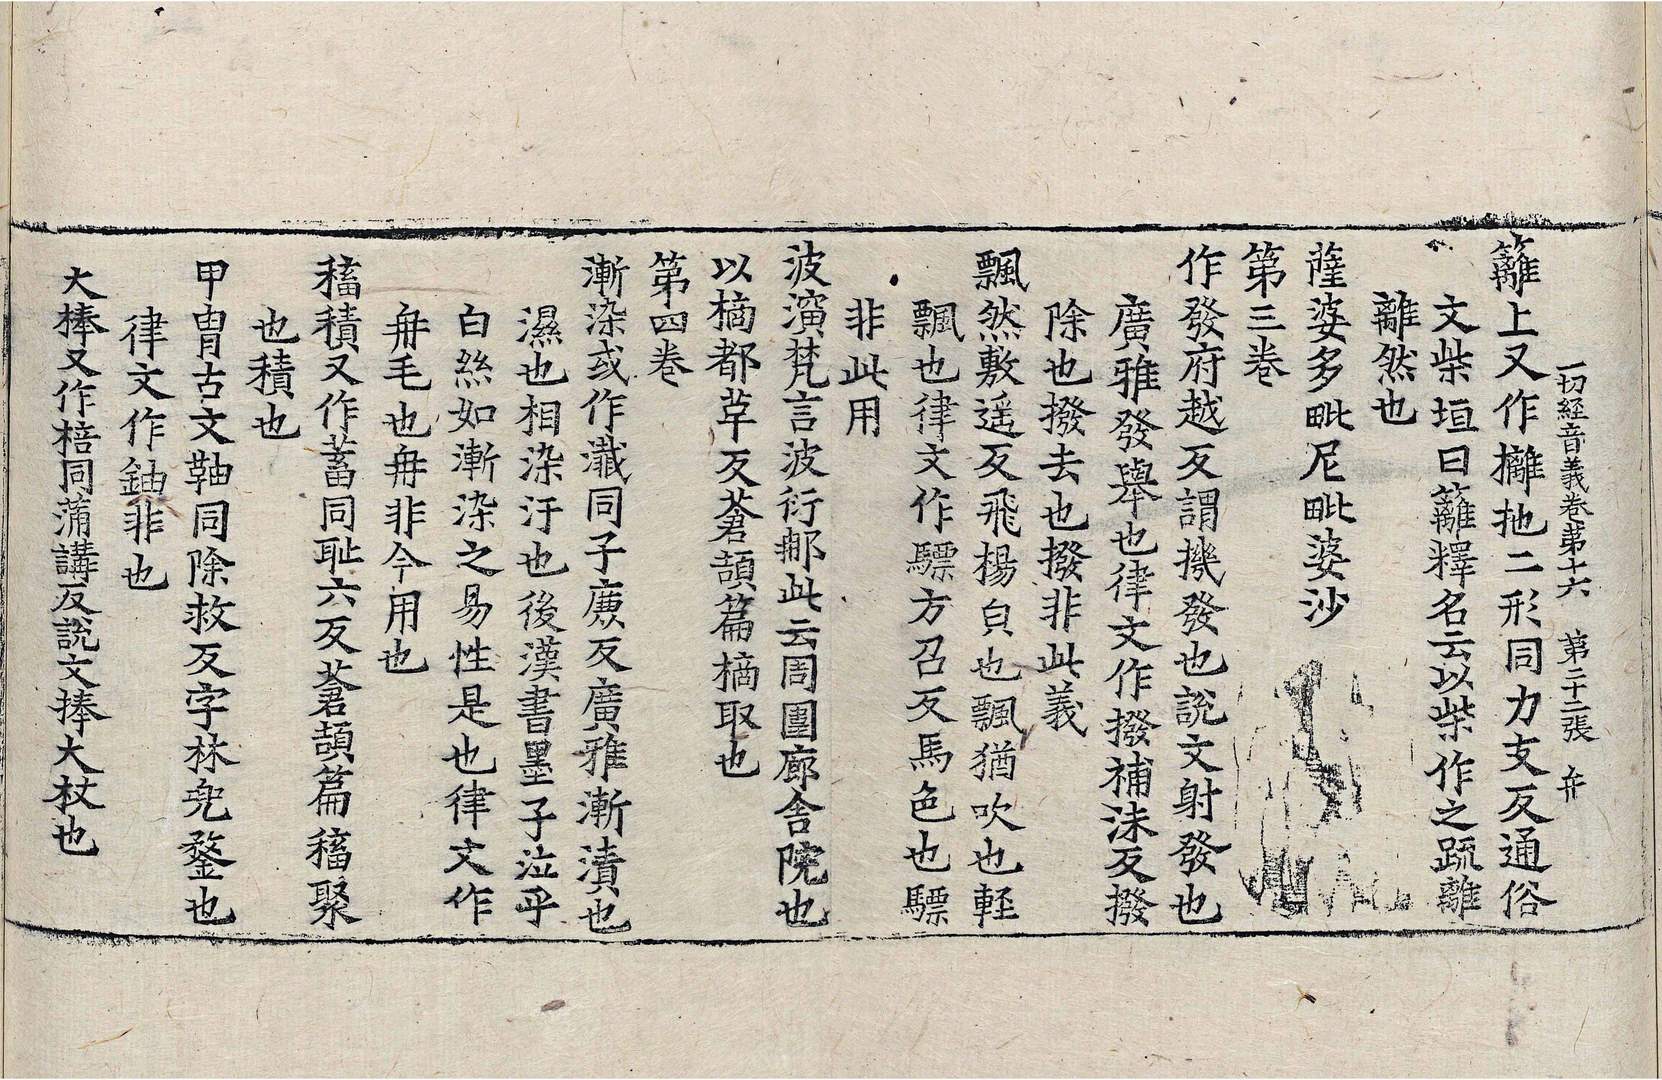 一切経音義卷第十六 第二十二張 弁
籬上又作欐杝二形同力支反通俗
文柴垣曰籬釋名云以柴作之踈離
離然也
薩婆多毗尼毗婆沙
第三卷
作發府越反謂機發也說文射發也
廣雅發舉也律文作撥補沬反撥
除也撥去也撥非此義
飄然敷遥反飛揚皃也飄猶吹也輕
飄也律文作驃方召反馬色也驃
非此用
波演梵言波衍那此云周圍廊舍院也
以樀都革反蒼頡篇樀取也
第四卷
漸染或作瀸同子廉反廣雅漸漬也
濕也相染汙也後漢書墨子泣乎
白絲如漸染之易性是也律文作
冄毛也冄非今用也
稸積又作蓄同耻六反蒼頡篇稸聚
也積也
甲冑古文䩜同除救反字林兜鍪也
律文作鈾非也
大棒又作棓同蒲講反說文棒大杖也